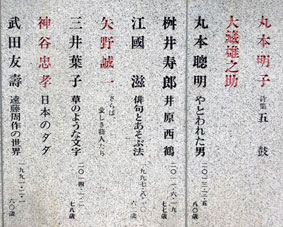 丸本明子 詩集 五鼓
大蔵雄之助
丸本聰明 やとわれた男 二〇一三・三・五 八〇歳
桝井寿郎 井原西鶴 二〇一一・六・一九 七七歳
江國滋 俳句とあそぶ法 一九九七・八・一〇
矢野誠一 さらば、愛しき藝人たち
三井葉子 草のような文字 二〇一四・一・二 七八歳
神谷忠孝 日本のダダ
武田友壽 遠藤周作の世界 一九九一・二・二一 六〇歳